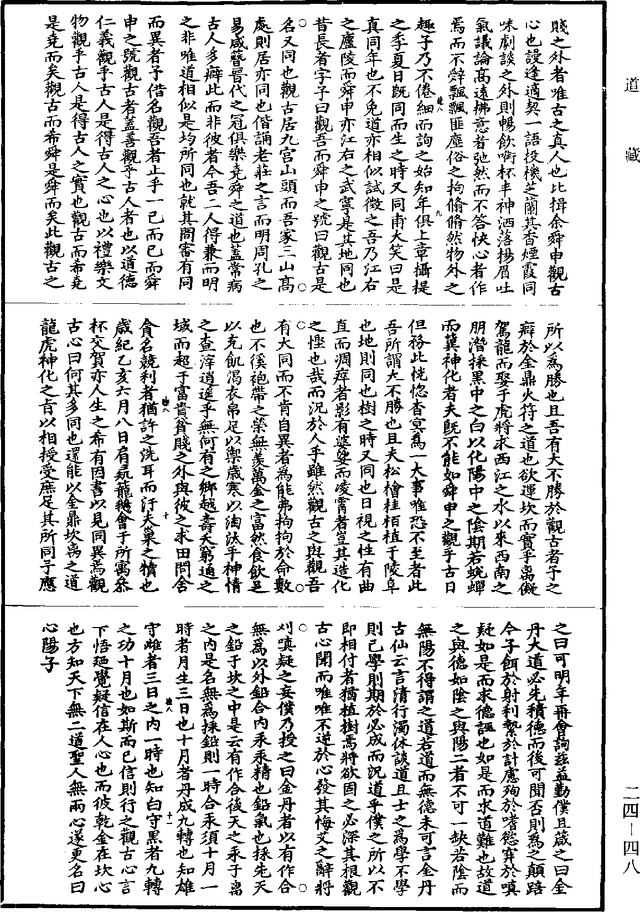 道藏
賤之外者唯古之真人也比揖余舜申觀古
心也設逢適契一語投機芝蘭其香煙霞同
味劇談之外則暢飲啣杯丰神洒落揚眉吐
氣議論高遠拂意者弛然而不答快心者作
焉而不辭飄飄匪塵俗之拘翛翛然物外之
趣子乃不倦細而詢之始知年俱上章攝提
之季夏日既同而生之時又同甫大笑曰是
真同年也不免道亦相似試徵之吾乃江右
之廬陵而舜申亦江右之武寧是其地同也
昔長者字子曰觀吾而舜申之號曰觀古是
名又同也觀古居九宮山頭而吾家三山高
處則居亦同也偕誦老莊之言而明周孔之
易咸簪晉代之冠俱樂堯舜之道也蓋常病
古人多癖此而非彼者今吾二人得兼而明
之非唯道相似是均所同也就其間審有同
而異者予借名觀吾者止乎一己而已而舜
申之號觀古者蓋喜觀乎古人者也以道德
仁義觀乎古人是得古人之心也以禮樂文
物觀乎古人是得古人之實也觀古而希堯
是堯而矣觀古而希舜是舜而矣此觀古之
所以為勝也且吾有大不勝於觀古者子之
癖於金鼎火符之道也欲運坎而實乎离儗
駕龍而娶于虎將求西江之水以來西南之
朋潛採黑中之白以化陽中之陰期若蛻蟬
而冀神化者夫既不能如舜申之觀乎古日
但務比恍惚杳冥為一大事唯恐不至者此
吾所謂大不勝也且夫松檜桂栢植于陵阜
也地則同也樹之時又同也日視之性有曲
直而凋瘁者影有婆娑而凌霄者豈其造化
之慳也哉而況於人乎雖然觀古之與觀吾
有大同而不肯自異者為能弗拘拘於命數
也不徯袍帶之榮無羨萬金之富然食飲足
以充飢渴衣帛足以禦歲寒以淘汰乎神情
之查滓逍遥乎無何有之鄉越壽夭窮通之
域而超于富貴貧賤之外與彼之求田問舍
貪名競利者猶許之洗耳而汙夫巢之犢也
歲紀乙亥六月八日肩疏龍鶴會子所寓忝
杯交賀亦人生之希有因書以見同異焉觀
古心曰何其多同也還能以金鼎坎离之道
龍虎神化之旨以相授受庶足其所同子應
之曰可明年再會詢茲益勤僕且箴之曰金
丹大道必先積德而後可聞否則為之顛路
今子餌於射利繫於計慮殉於嗜慾穿於嗔
疑如是而求德誣也如是而求道難也故道
之與德如陰之與陽二者不可一缺若陰而
無陽不得謂之道若道而無德未可言金丹
古仙云言清行濁休談道且士之為學不學
則已學則期於必成而況道乎僕之所以不
即相付者猶植樹焉將欲固之必深其根觀
古心開而唯唯不逆於心發其悔文之辭將
刈嗔疑之妄僕乃授之曰金丹者以有作合
無為以外鉛合內汞汞精也鉛氣也採先天
之鉛于坎之中是云有作合後天之汞于离
之內是名無為採鉛則一時合汞須十月一
時者月生三日也十月者丹成九轉也知雄
守雌者三日之內一時也知白守黑者九轉
之功十月也如斯而已信則行之觀古心言
下悟迺覺疑信在人心也而彼乾金在坎心
也方知天下無二道聖人無兩心遂更名曰
心陽子
二四—四八